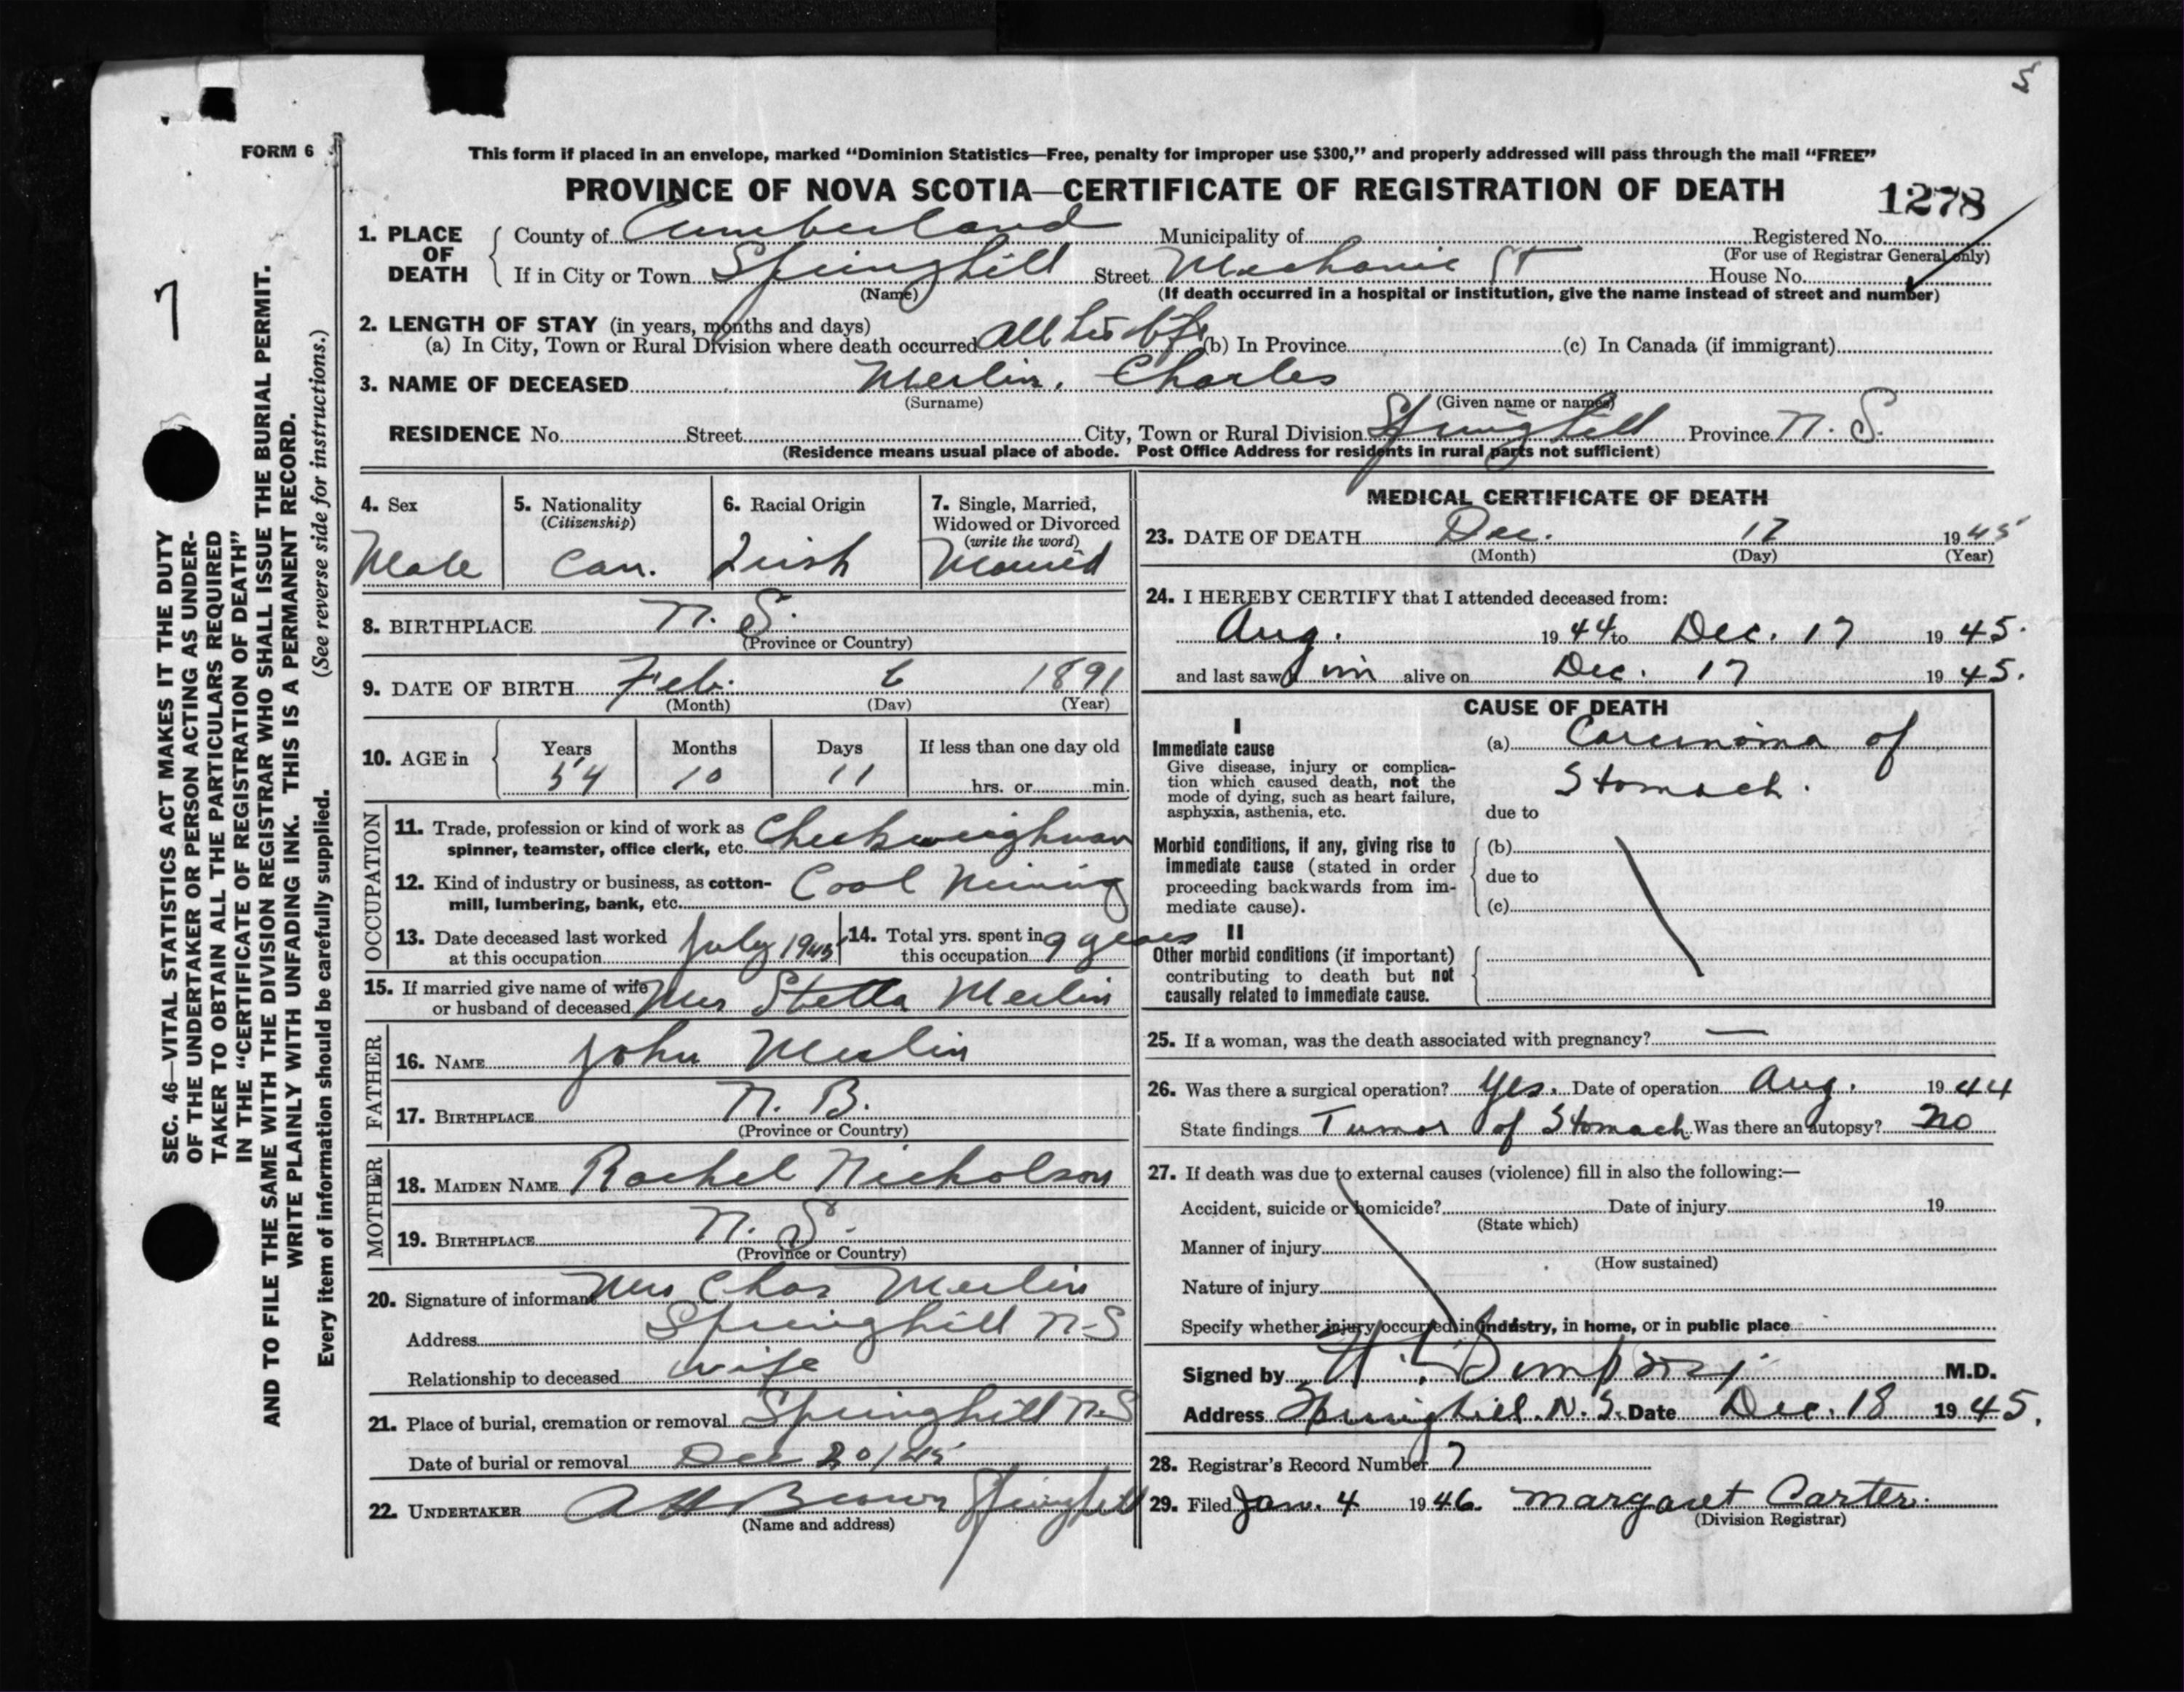 5
FORM 6
This form if placed in an envelope, marked “Dominion Statistics—Free, penalty for improper use $300,” and properly addressed will pass through the mail “FREE”
PROVINCE OF NOVA SCOTIA—CERTIFICATE OF REGISTRATION OF DEATH
1278
7
SEC. 46—VITAL STATISTICS ACT MAKES IT THE DUTY
OF THE UNDERTAKER OR PERSON ACTING AS UNDER-
TAKER TO OBTAIN ALL THE PARTICULARS REQUIRED
IN THE “CERTIFICATE OF REGISTRATION OF DEATH”
AND TO FILE THE SAME WITH THE DIVISION REGISTRAR WHO SHALL ISSUE THE BURIAL PERMIT.
WRITE PLAINLY WITH UNFADING INK. THIS IS A PERMANENT RECORD.
(See reverse side for instructions.)
Every item of information should be carefully supplied.
1. PLACE OF DEATH
County of Cumberland Municipality of Registered No.
(For use of Registrar General only)
If in City or Town Springhill Street Mechanic St House No.
(Name) (If death occurred in a hospital or institution, give the name instead of street and number)
2. LENGTH OF STAY (in years, months and days)
(a) In City, Town or Rural Division where death occurred All his life (b) In Province (c) In Canada (if immigrant)
3. NAME OF DECEASED Merlin, Charles
(Surname) (Given name or names)
RESIDENCE No. Street City, Town or Rural Division Springhill Province N. S.
(Residence means usual place of abode. Post Office Address for residents in rural parts not sufficient)
4. Sex
Male
5. Nationality
(Citizenship)
Can.
6. Racial Origin
Irish
7. Single, Married,
Widowed or Divorced
(write the word)
Married
8. BIRTHPLACE N. S.
(Province or Country)
9. DATE OF BIRTH Feb. 6 1891
(Month) (Day) (Year)
10. AGE in
Years Months Days If less than one day old
54 10 11 hrs. or min.
OCCUPATION
11. Trade, profession or kind of work as
spinner, teamster, office clerk, etc. Checkweighman
12. Kind of industry or business, as cotton-
mill, lumbering, bank, etc. Coal Mining
13. Date deceased last worked
at this occupation July 1945
14. Total yrs. spent in
this occupation 9 years
15. If married give name of wife
or husband of deceased Mrs Stella Merlin
FATHER
16. NAME John Merlin
17. BIRTHPLACE N. B.
(Province or Country)
MOTHER
18. MAIDEN NAME Rachel Nicholson
19. BIRTHPLACE N. S.
(Province or Country)
20. Signature of informant Mrs Chas Merlin
Address Springhill N-S
Relationship to deceased wife
21. Place of burial, cremation or removal Springhill N-S
Date of burial or removal Dec 20/45
22. UNDERTAKER A H Brown Springhill
(Name and address)
MEDICAL CERTIFICATE OF DEATH
23. DATE OF DEATH Dec. 17 1945
(Month) (Day) (Year)
24. I HEREBY CERTIFY that I attended deceased from:
Aug. 1944 to Dec. 17 1945.
and last saw him alive on Dec. 17 1945.
CAUSE OF DEATH
I
Immediate cause
Give disease, injury or complica-
tion which caused death, not the
mode of dying, such as heart failure,
asphyxia, asthenia, etc.
(a) Carcinoma of
Stomach.
due to
Morbid conditions, if any, giving rise to
immediate cause (stated in order
proceeding backwards from im-
mediate cause).
(b)
due to
(c)
II
Other morbid conditions (if important)
contributing to death but not
causally related to immediate cause.
25. If a woman, was the death associated with pregnancy? —
26. Was there a surgical operation? Yes. Date of operation Aug. 1944
State findings Tumor of Stomach Was there an autopsy? No
27. If death was due to external causes (violence) fill in also the following:—
Accident, suicide or homicide? Date of injury 19
(State which)
Manner of injury
(How sustained)
Nature of injury
Specify whether injury occurred in industry, in home, or in public place
Signed by M.D.
Address Springhill. N. S. Date Dec. 18 1945.
28. Registrar's Record Number 7
29. Filed Jan. 4 1946. Margaret Carter.
(Division Registrar)